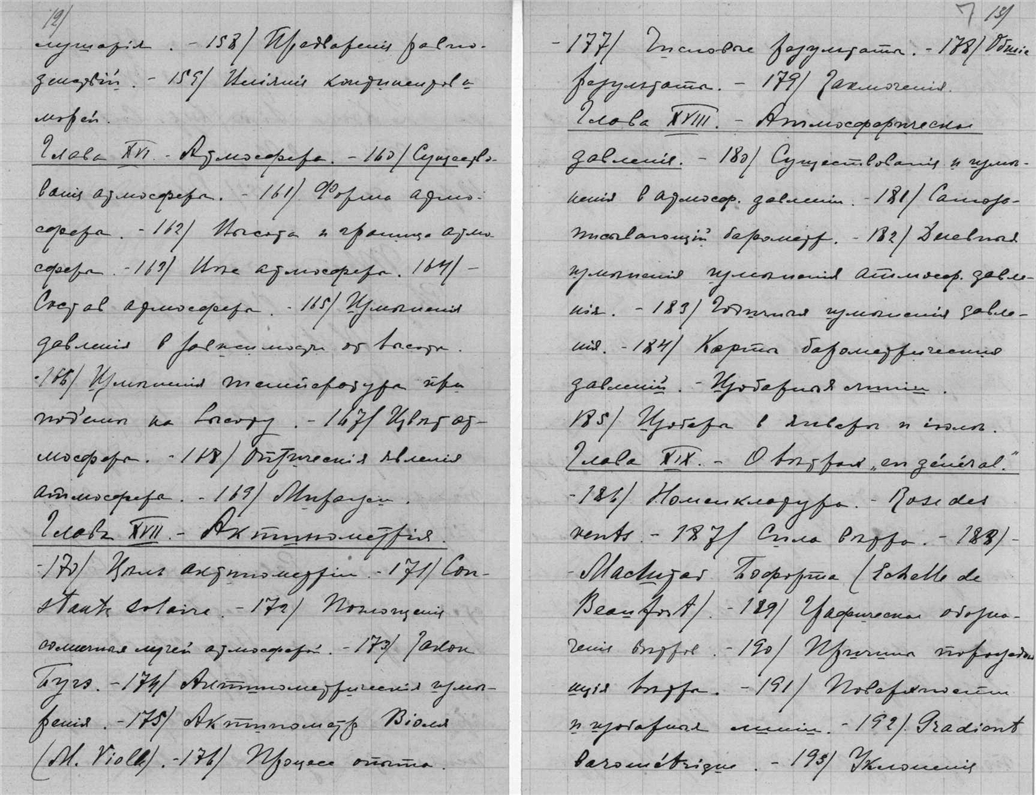 12/
лушарія. - 158/ Предвареніе равно-
денствій. - 159/ Вліяніе континентов и
морей
Глава XVI. - Атмосфера. - 160/ Существо-
ваніе атмосферы. 161/ Форма атмо-
сферы. - 162/ Высота и граница атмо
сферы. - 163/ атмосферы. 164/ -
Состав атмосферы. - 165/ Измѣненія
давленія в зависимости от высоты.
- 166/ Измѣненія температуры при
подъемѣ на высоту. - 167/ Цвѣт ат-
мосферы. - 168/ Оптическія явленія
атмосферы. - 169/ Миражи
Глава XVII. - Актинометрія.
- 170/ Цѣль актинометріи - 171/ Con-
stante solaire. - 172/ Поглощеніе
солнечных лучей атмосферой. - 173/ Закон
Буге. - 174/ Актинометрическія измѣ-
ренія. - 175/ Актинометр Віоля
(M. Violle). - 176/ Процесс опыта.
13/
- 177/ Числовые результаты. - 178/ Общіе
результаты. - 179/ Заключенія.
Глава XVIII. - Атмосферическое
давленіе. - 180/ Существованіе и измѣ-
ненія в атмосф. давленіи. - 181/ Саморо-
писывающій барометр. - 182/ Дневныя
измѣненія измѣненія атмосф. давле-
нія. - 183/ Годичныя измѣненія давле-
нія. - 184/ Карты барометрических
давленій. - Изобарныя линіи.
185/ Изобары в Январѣ и іюлѣ.
Глава XIX. - О вѣтрах „en général."
- 186/ Номенклатура. - Rose des
vents. - 187/ Сила вѣтра. - 188/ -
- Масштаб Бофорта (Echelle de
Beaufort). - 189/ Графическое обозна-
ченіе вѣтров. - 190/ Причина
вѣтра. - 191/ Поверхности
и изобарныя линіи. - 192/ Gradient
barométrique. - 193/ Уклоненія